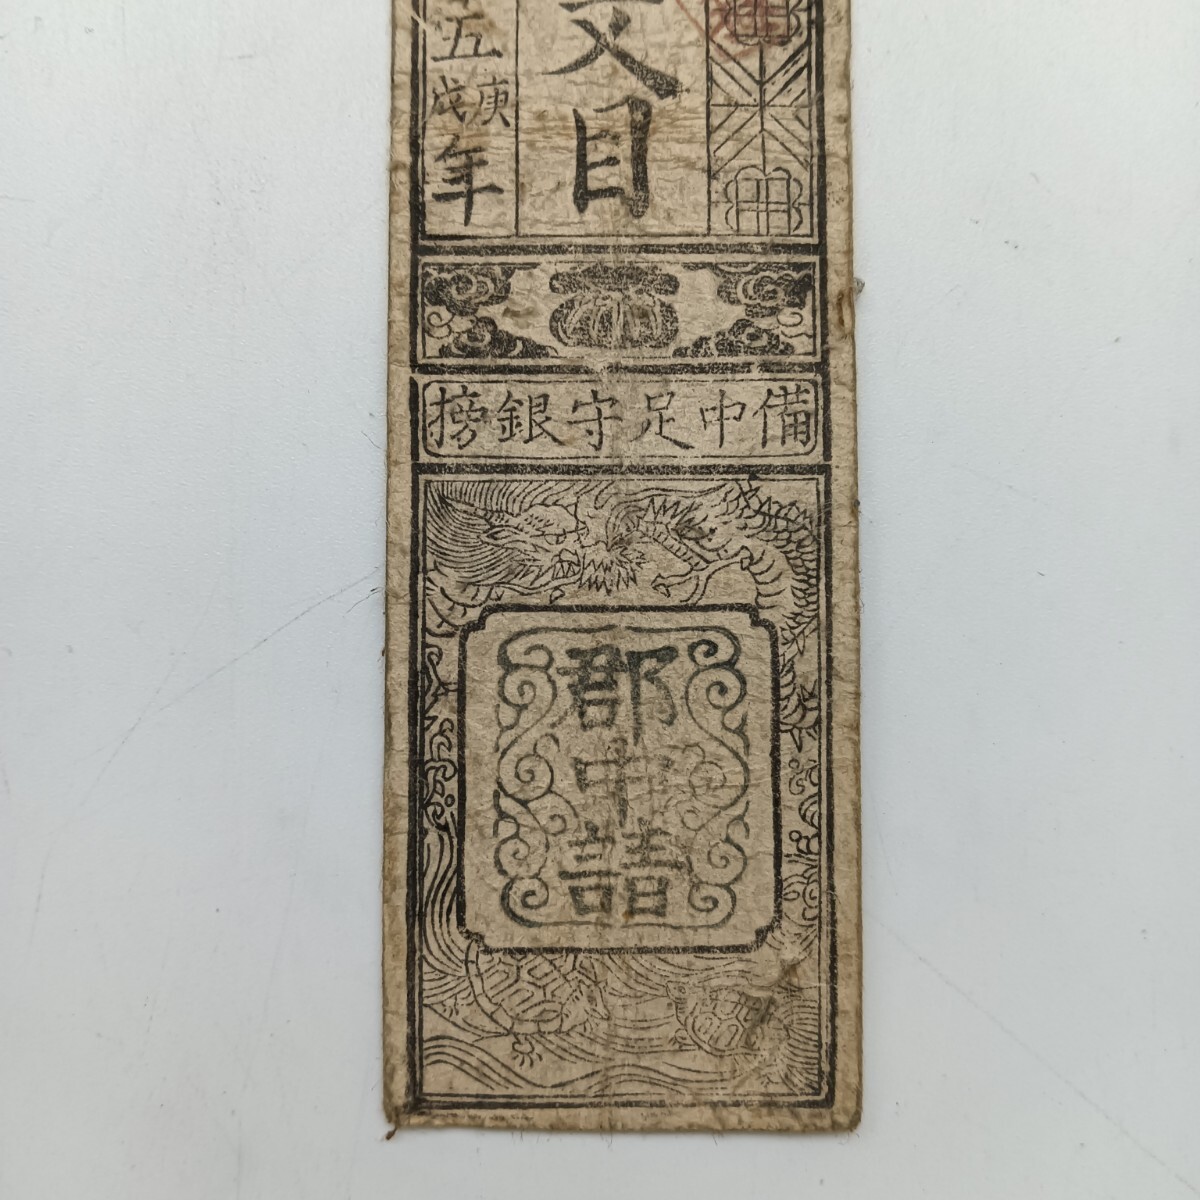 文目
五庚戌年
備中足守銀榜
郡中請